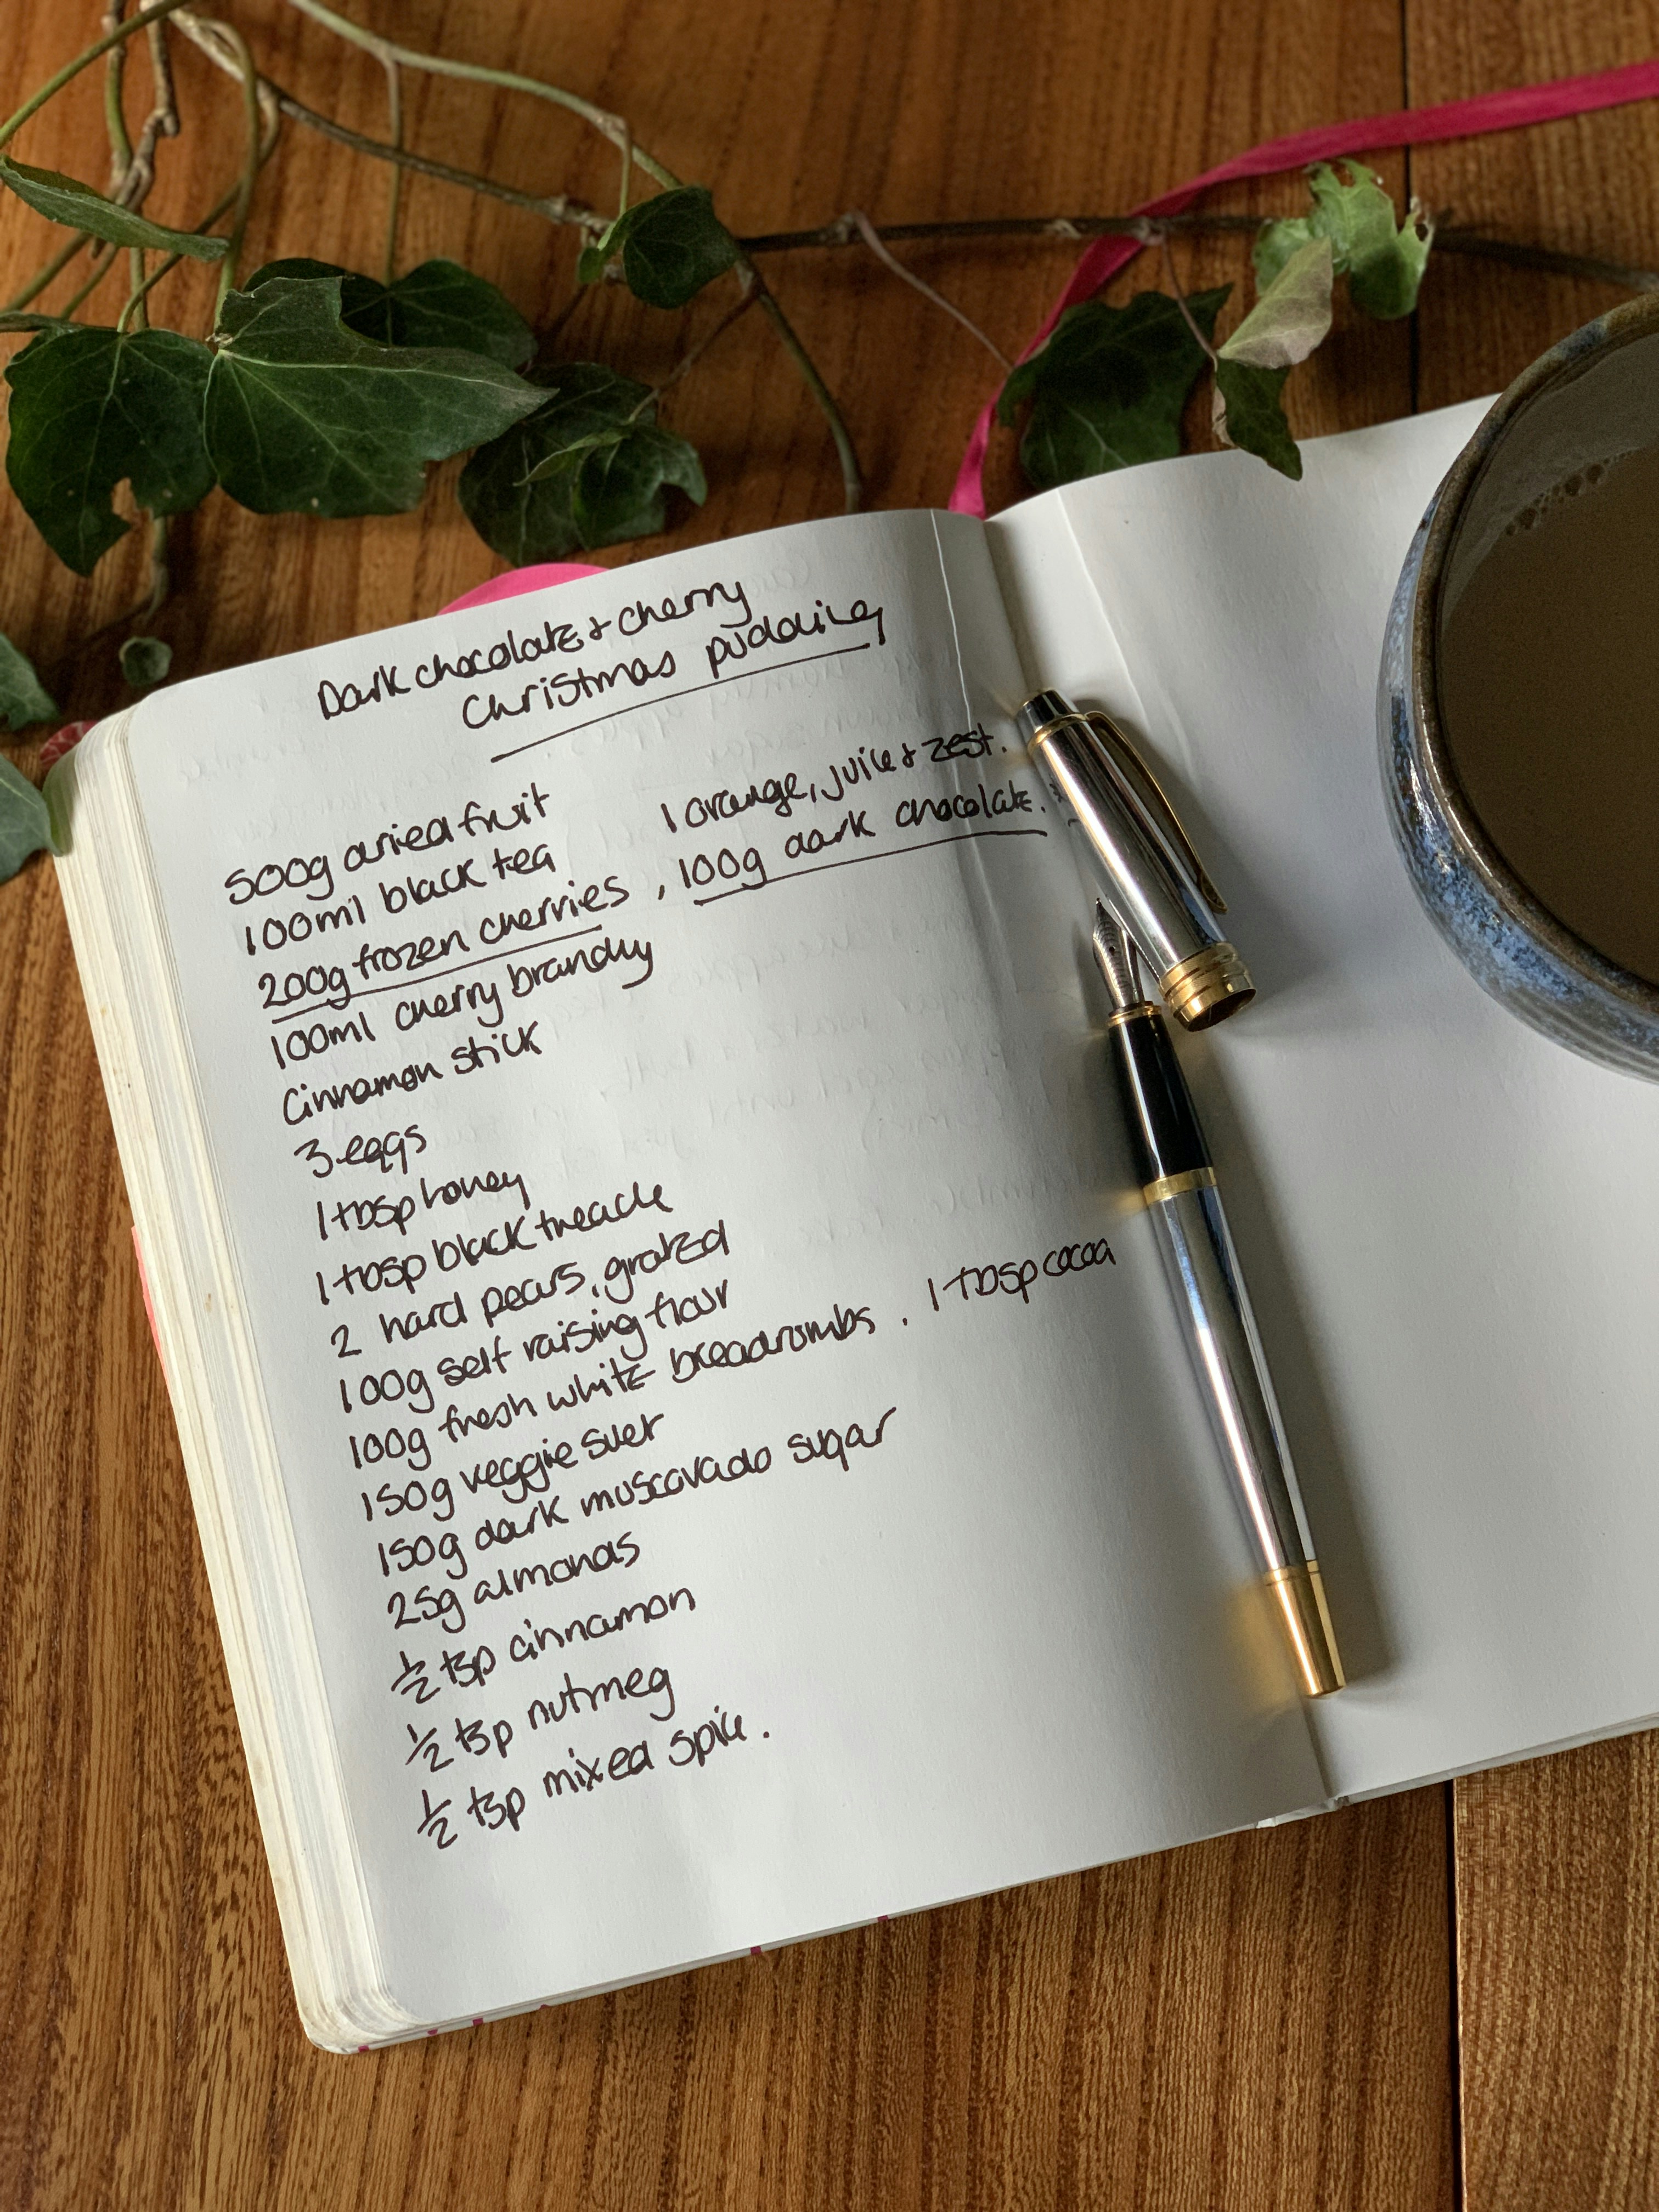 Dark chocolate & cherry
Christmas pudding
500g dried fruit
1 orange, juice & zest.
100ml black tea
200g frozen cherries , 100g dark chocolate.
100ml cherry brandy
Cinnamon stick
3 eggs
1 tbsp honey
1 tbsp black treacle
2 hard pears, grated
100g self raising flour
100g fresh white breadcrumbs . 1 tbsp cocoa
150g veggie suet
150g dark muscavado sugar
25g almonds
½ tsp cinnamon
½ tsp nutmeg
½ tsp mixed spice.